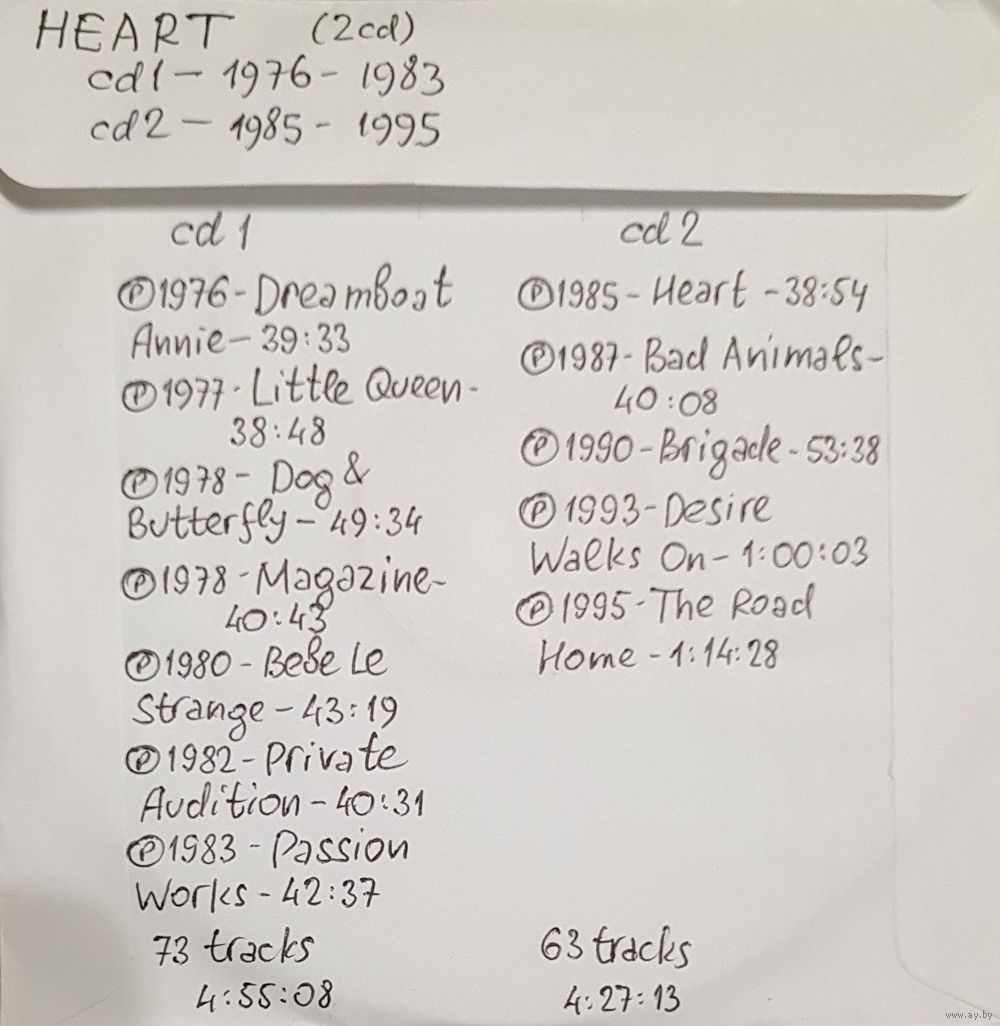 HEART (2cd)
cd1 - 1976 - 1983
cd2 - 1985 - 1995
cd 1
Ⓟ1976 - Dreamboat
Annie - 39:33
Ⓟ1977 - Little Queen -
38:48
Ⓟ1978 - Dog &
Butterfly - 49:34
Ⓟ1978 - Magazine -
40:43
Ⓟ1980 - Bebe Le
Strange - 43:19
Ⓟ1982 - Private
Audition - 40:31
Ⓟ1983 - Passion
Works - 42:37
73 tracks
4:55:08
cd 2
Ⓟ1985 - Heart - 38:54
Ⓟ1987 - Bad Animals -
40:08
Ⓟ1990 - Brigade - 53:38
Ⓟ1993 - Desire
Walks On - 1:00:03
Ⓟ1995 - The Road
Home - 1:14:28
63 tracks
4:27:13
www.ay.by